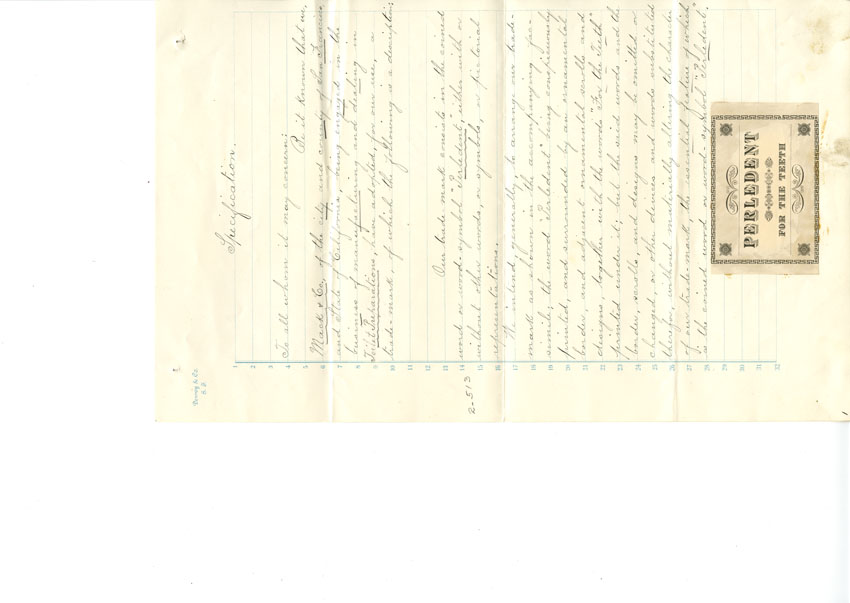 Specification.
To all whom it may concern:
Be it known that we,
Mack & Co., of the city and county of San Francisco
and State of California, being engaged in the
business of manufacturing and dealing in
Toilet Preparations, have adopted, for our use, a
trade-mark, of which the following is a description:
Our trade mark consists in the coined
word or word-symbol "Perledent", either with or
without other words, or symbols, or pictorial
representations.
We intend, generally, to arrange our trade-
mark as shown in the accompanying fac-
simile, the word "Perledent" being conspicuously
printed, and surrounded by an ornamental
border, and adjacent ornamental scrolls and
designs, together with the words "For the Teeth"
printed under it; but the said words and the
border, scrolls, and designs may be omitted or
changed, or other devices and words substituted
therefor, without materially altering the character
of our trade-mark, the essential feature of which
is the coined word or word-symbol "Perledent."
PERLEDENT
FOR THE TEETH
2-513
Dewey & Co.
S. F.
1
2
3
4
5
6
7
8
9
10
11
12
13
14
15
16
17
18
19
20
21
22
23
24
25
26
27
28
29
30
31
32